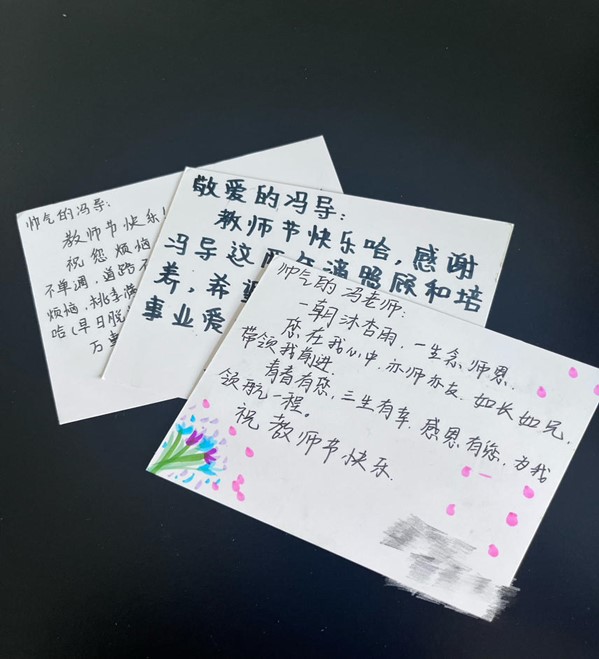 帅气的冯导：
教师节快乐！
祝您烦恼
不单调，道路不
烦恼，桃李满
哈（早日脱
万事
敬爱的冯导：
教师节快乐哈，感谢
冯导这两年满照顾和培
养，希望
事业爱
帅气的冯老师：
一朝沐杏雨，一生念师恩．
您在我心中，亦师亦友，如长如兄，
带领我前进．
青春有您，三生有幸．感恩有您，为我
领航一程。
祝教师节快乐．